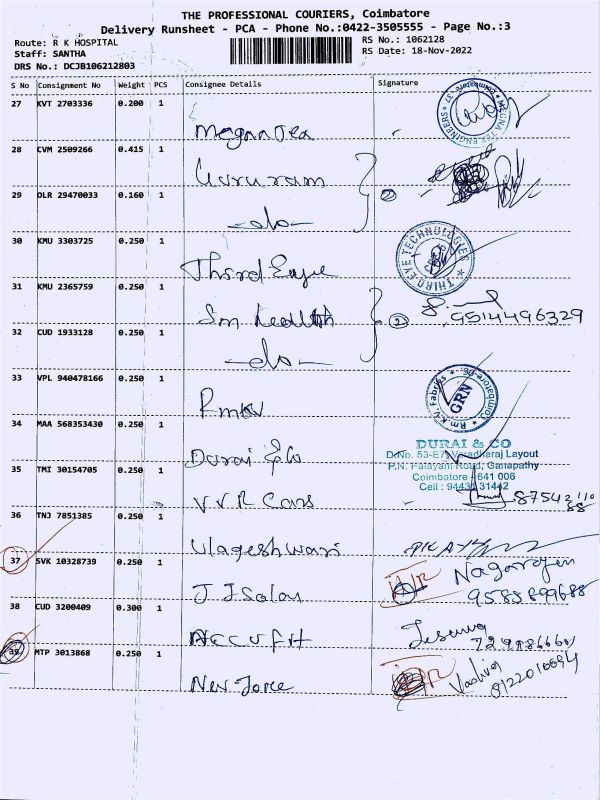 THE PROFESSIONAL COURIERS, Coimbatore
Delivery Runsheet - PCA - Phone No.:0422-3505555 - Page No.:3
Route: R K HOSPITAL
Staff: SANTHA
DRS No.: DCJB106212803
RS No.: 1062128
RS Date: 18-Nov-2022
S No Consignment No Weight PCS Consignee Details Signature
27 KVT 2703336 0.200 1
28 CVM 2509266 0.415 1
29 OLR 29470033 0.160 1
-do-
30 KMU 3303725 0.250 1
THIRD EYE TECHNOLOGIES
31 KMU 2365759 0.250 1
Sm 2 9514496329
32 CUD 1933128 0.250 1
-do-
33 VPL 940478166 0.250 1
Rmkv
Rm. K.V. Fabrics Coimbatore
GRN
34 MAA 568353430 0.250 1
Durai & Co
DURAI & CO
D.No. 53-E7, Varadharaj Layout
P.N. Palayam Road, Ganapathy
Coimbatore 641 006
Cell : 94431 31442
35 TMI 30154705 0.250 1
V V R Cars
36 TNJ 7851385 0.250 1
Ulageshwari
37 SVK 10328739 0.250 1
J J Salon Nagarajan
9585899688
38 CUD 3200409 0.300 1
39 MTP 3013868 0.250 1
New Force